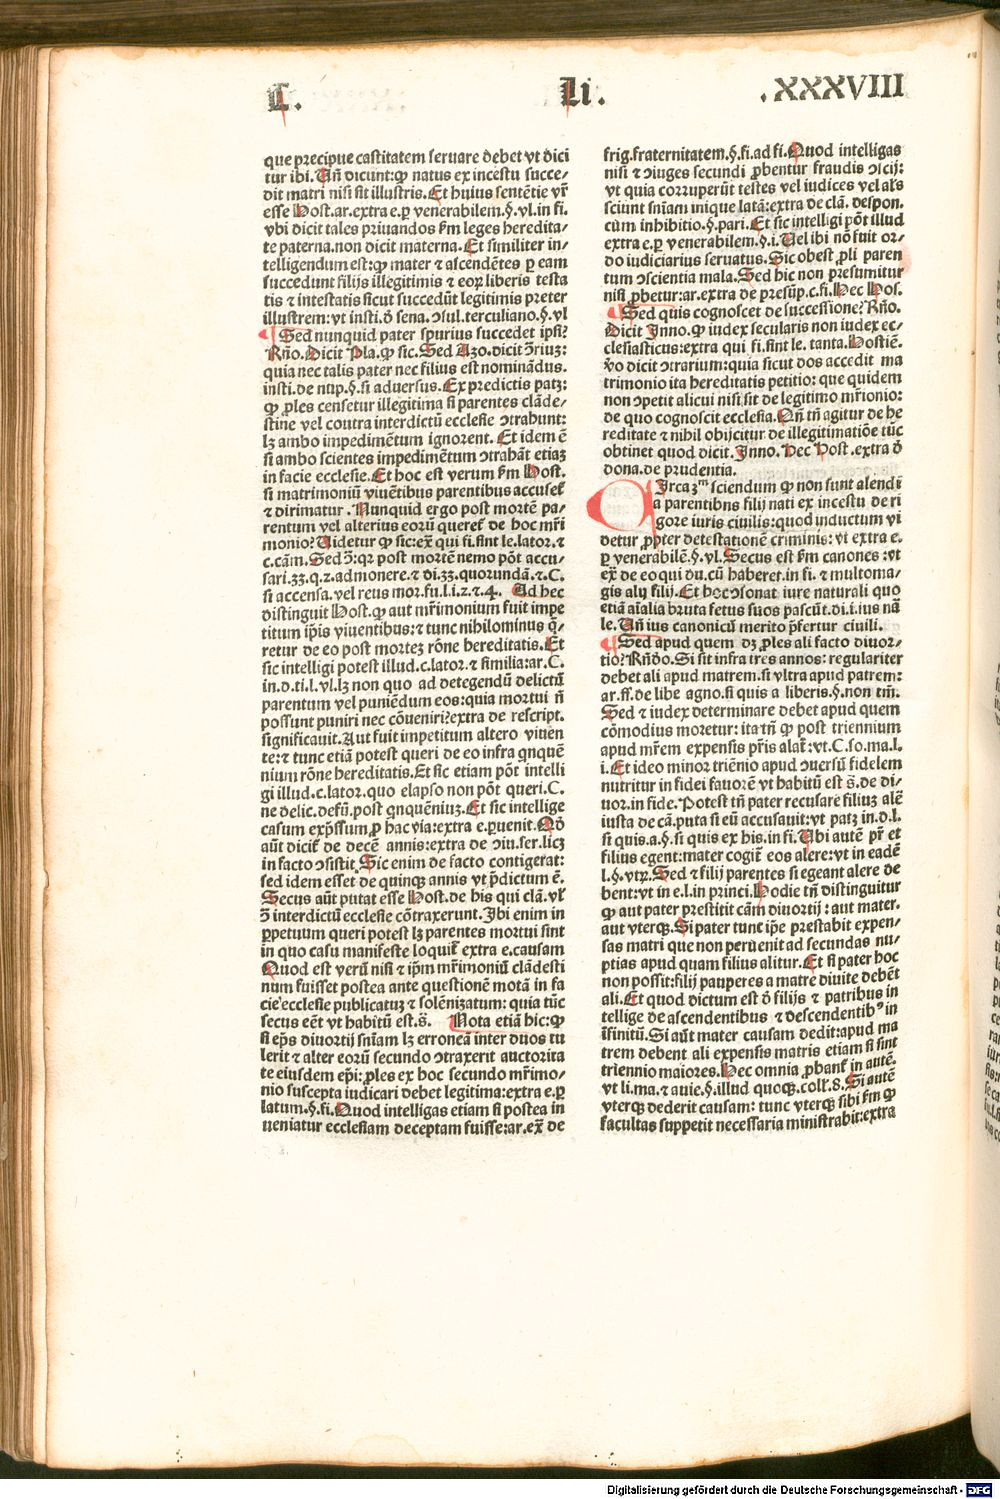 C.
Li.
.XXXVIII
que precipue castitatem seruare debet vt dici
tur ibi. Uñ dicunt: ꝙ natus ex incestu succe⸗
dit matri nisi sit illustris. Et huius sentētie vr̄
esse Host. ar. extra e. ꝑ venerabilem. §. vl. in fi.
vbi dicit tales priuandos ẜm leges heredita⸗
te paterna. non dicit materna. Et similiter in⸗
telligendum est: ꝙ mater ⁊ ascendētes ꝑ eam
succedunt filijs illegitimis ⁊ eoꝝ liberis testa
tis ⁊ intestatis sicut succedūt legitimis preter
illustrem: vt insti. ď sena. ↄsul. terculiano. §. vl
Sed nunquid pater spurius succedet ipsi?
Rn̄o. Dicit Pla. ꝙ sic. Sed Azo. dicit ↄ̄riuz:
quia nec talis pater nec filius est nominādus.
insti. de nup. §. si aduersus. Ex predictis patꝫ:
ꝙ ꝓles censetur illegitima si parentes clāde⸗
stine vel contra interdictū ecclesie ↄtrahunt:
lꝫ ambo impedimētum ignorent. Et idem ē
si ambo scientes impedimētum ↄtrahāt etiaꝫ
in facie ecclesie. Et hoc est verum ẜm Host.
si matrimoniū viuētibus parentibus accuset̄
⁊ dirimatur. Nunquid ergo post mortē pa⸗
rentum vel alterius eorū queret̄ de hoc mr̄i
monio? Uidetur ꝙ sic: ex̄ qui fi. sint le. lator. ⁊
c. cām. Sed ↄ̄: qꝛ post mortē nemo pōt accu⸗
sari. 33. q. 2. admonere. ⁊ di. 33. quorundā. ⁊. C.
si accensa. vel reus mor. fu. l. i. 2. ⁊. 4. Ad hec
distinguit Host. ꝙ aut mr̄imonium fuit impe
titum ip̄is viuentibus: ⁊ tunc nihilominus q̄⸗
retur de eo post morteꝫ rōne hereditatis. Et
sic intelligi potest illud. c. lator. ⁊ similia: ar. C.
in. d. ti. l. vl. lꝫ non quo ad detegendū delictū
parentum vel puniēdum eos: quia mortui n̄
possunt puniri nec cōueniri? extra de rescript.
significauit. Aut fuit impetitum altero viuen
te: ⁊ tunc etiā potest queri de eo infra qnquē
nium rōne hereditatis. Et sic etiam pōt intelli
gi illud. c. lator. quo elapso non pōt queri. C.
ne de lic. defū. post qnquēniuꝫ. Et sic intellige
casum exp̄ssum ꝓ hac via: extra e. ꝑuenit. Qď
aūt dicit̄ de decē annis: extra de ↄiu. ser. licꝫ
in facto ↄsistit. Sic enim de facto contigerat:
sed idem esset de quinqꝫ annis vt p̄dictum ē.
Secus aūt putat esse Host. de his qui clā. vl̄
ↄ̄ interdictū ecclesie cōtraxerunt. Ibi enim in
ꝑpetuum queri potest lꝫ parentes mortui sint
in quo casu manifeste loquit̄ extra e. causam
Quod est verū nisi ⁊ ip̄m mr̄imoniū clādesti
num fuisset postea ante questionē motā in fa
cie ecclesie publicatuꝫ ⁊ solēnizatum: quia tūc
secus eēt vt habitū est. s̄. Nota etiā hic: ꝙ
si ep̄s diuortij sn̄iam lꝫ erroneā inter duos tu
lerit ⁊ alter eorū secundo ↄtraxerit auctorita
te eiusdem ep̄i: ꝓles ex hoc secundo mr̄imo⸗
nio suscepta iudicari debet legitima: extra e. ꝑ
latum. §. fi. Quod intelligas etiam si postea in
ueniatur ecclesiam deceptam fuisse: ar. ex̄ de
frig. fraternitatem. §. fi. ad fi. Quod intelligas
nisi ⁊ ↄiuges secundi ꝓbentur fraudis ↄscij:
vt quia corruperūt testes vel iudices vel al̄s
sciunt sn̄iam inique latā: extra de clā. despon.
cūm inhibitio. §. pari. Et sic intelligi pōt illud
extra e. ꝑ venerabilem. §. i. Uel ibi nō fuit or⸗
do iudiciarius seruatus. Sic obest ꝓli paren
tum ↄscientia mala. Sed hic non presumitur
nisi ꝓbetur: ar. extra de presūp. c. fi. Hec Hos.
Sed quis cognoscet de successione? Rn̄o.
Dicit Inno. ꝙ iudex secularis non iudex ec⸗
clesiasticus: extra qui fi. sint le. tanta. Hostiē.
vo dicit ↄtrarium: quia sicut dos accedit ma
trimonio ita hereditatis petitio: que quidem
non ↄpetit alicui nisi sit de legitimo mr̄ionio:
de quo cognoscit ecclesia. Qn̄ tn̄ agitur de he
reditate ⁊ nihil obijcitur de illegitimatiōe tūc
obtinet quod dicit. Inno. Hec Host. extra ď
dona. de prudentia.
CIrca 3ᵐ sciendum ꝙ non sunt alendi
a parentibus filij nati ex incestu de ri
gore iuris ciuilis: quod inductum vi
detur ꝓpter detestationē criminis: vt extra e.
ꝑ venerabilē. §. vl. Secus est ẜm canones: vt
ex̄ de eo qui du. cū haberet. in fi. ⁊ multo ma⸗
gis alij filij. Et hoc ↄsonat iure naturali quo
etiā aīalia bruta fetus suos pascūt. di. i. ius nā
le. Uñ ius canonicū merito p̄fertur ciuili.
Sed apud quem dꝫ ꝓles ali facto diuor⸗
tio? Rn̄do. Si sit infra tres annos: regulariter
debet ali apud matrem. si vltra apud patrem:
ar. ff. de libe agno. si quis a liberis. §. non tm̄.
Sed ⁊ iudex determinare debet apud quem
cōmodius moretur: ita tn̄ ꝙ post triennium
apud mr̄em expensis pr̄is alat̄: vt. C. so. ma. l.
i. Et ideo minor triēnio apud ↄuersū fidelem
nutritur in fidei fauorē vt habitū est s̄. de di⸗
uor. in fide. Potest tn̄ pater recusare filiuꝫ alē
iusta de cā. puta si eū accusauit: vt patꝫ in. d. l.
si quis. a. §. si quis ex his. in fi. Ubi autē pr̄ et
filius egent: mater cogit̄ eos alere: vt in eadē
l. §. vtꝝ. Sed ⁊ filij parentes si egeant alere de
bent: vt in e. l. in princi. Hodie tn̄ distinguitur
ꝙ aut pater prestitit cām diuortij: aut mater.
aut vterqꝫ. Si pater tunc ip̄e prestabit expen⸗
sas matri que non peruenit ad secundas nu⸗
ptias apud quam filius alitur. Et si pater hoc
non possit: filij pauperes a matre diuite debēt
ali. Et quod dictum est ď filijs ⁊ patribus in
tellige de ascendentibus ⁊ descendentibꝰ in
īfinitū. Si aūt mater causam dedit: apud ma
trem debent ali expensis matris etiam si sint
triennio maiores. Hec omnia ꝓbant̄ in autē.
vt li. ma. ⁊ auie. §. illud quoqꝫ. coll̄. 8. Si autē
vterqꝫ dederit causam: tunc vterqꝫ sibi ẜm ꝙ
facultas suppetit necessaria ministrabit: extra
Digitalisierung gefördert durch die Deutsche Forschungsgemeinschaft - DFG